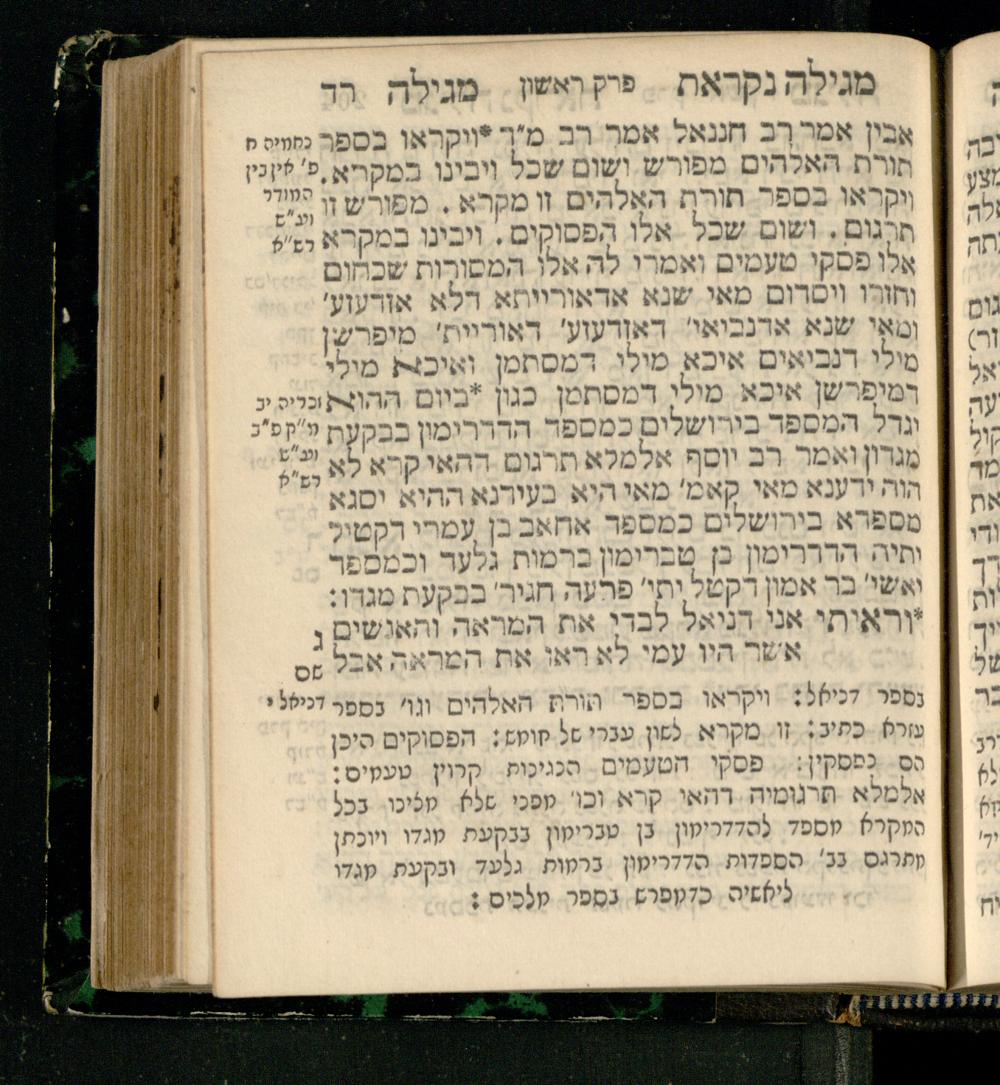 מגילה נקראת פרק ראשון מגילה רד
אבין אמר רב חננאל אמר רב מ״ד *ויקראו בספר
תורת האלהים מפורש ושום שכל ויבינו במקרא.
ויקראו בספר תורת האלהים זו מקרא. מפורש זו
תרגום. ושום שכל אלו הפסוקים. ויבינו במקרא
אלו פסקי טעמים ואמרי לה אלו המסורות שכחום
וחזרו ויסדום מאי שנא אדאורייתא דלא אזדעזע׳
ומאי שנא אדנביאי׳ דאזדעזע׳ דאוריית׳ מיפרשן
מילי דנביאים איכא מילי דמסתמן ואיכא מילי
דמיפרשן איכא מילי דמסתמן כגון *ביום ההוא
יגדל המספד בירושלים כמספד הדדרימון בבקעת
מגדון ואמר רב יוסף אלמלא תרגום דהאי קרא לא
הוה ידענא מאי קאמ׳ מאי היא בעידנא ההיא יסגא
מספדא בירושלים כמספד אחאב בן עמרי דקטיל
יתיה הדדרימון בן טברימון ברמות גלעד וכמספד
יאשי׳ בר אמון דקטל יתי׳ פרעה חגיר׳ בבקעת מגדו:
*וראיתי אני דניאל לבדי את המראה והאנשים
אשר היו עמי לא ראו את המראה אבל
בספר דניאל: ויקראו בספר תורת האלהים וגו׳ בספר
עזרא כתיב: זו מקרא לשון עברי של חומש: הפסוקים היכן
הם נפסקין: פסקי הטעמים הנגינות קרוין טעמים:
אלמלא תרגומיה דהאי קרא וכו׳ מפני שלא מצינו בכל
המקרא מספד להדדרימון בן טברימון בבקעת מגדו ויונתן
מתרגם בב׳ הספדות הדדרימון ברמות גלעד ובקעת מגדו
ליאשיה כדמפרש בספר מלכים:
נחמיה ח
פ׳ אין בין
המודר
וע״ש
רש״א
זכריה יב
מ״ק פ״ב
וע״ש
רש״א
ג
שם
דניאל י